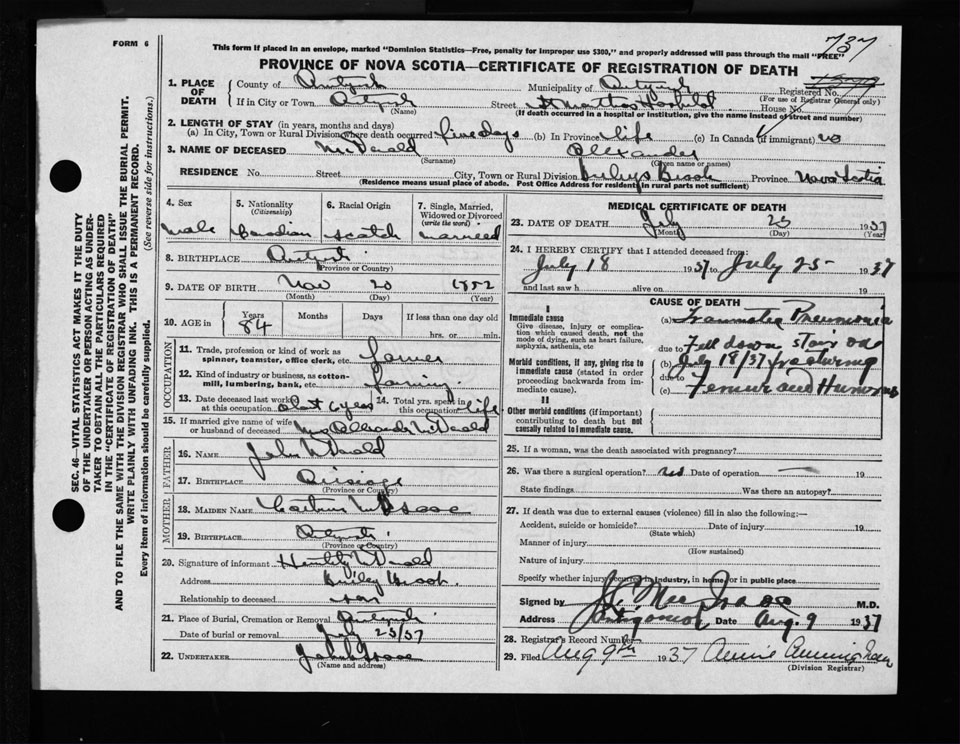 737
FORM 6
This form if placed in an envelope, marked "Dominion Statistics—Free, penalty for improper use $300," and properly addressed will pass through the mail "FREE"
PROVINCE OF NOVA SCOTIA—CERTIFICATE OF REGISTRATION OF DEATH
1. PLACE OF DEATH
County of
Municipality of
Registered No.
(For use of Registrar General only)
If in City or Town
(Name)
Street St Marthas Hospital House No.
(If death occurred in a hospital or institution, give the name instead of street and number)
2. LENGTH OF STAY (in years, months and days)
(a) In City, Town or Rural Division where death occurred five days (b) In Province life (c) In Canada (if immigrant) no
3. NAME OF DECEASED McDonald Alexander
(Surname) (Given name or names)
RESIDENCE No. Street City, Town or Rural Division Brook Province Nova Scotia
(Residence means usual place of abode. Post Office Address for residents in rural parts not sufficient)
4. Sex
Male
5. Nationality
(Citizenship)
Canadian
6. Racial Origin
Scotch
7. Single, Married, Widowed or Divorced
(write the word)
married
8. BIRTHPLACE
(Province or Country)
9. DATE OF BIRTH Nov 20 1852
(Month) (Day) (Year)
10. AGE in
Years Months Days If less than one day old
84
hrs. or min.
OCCUPATION
11. Trade, profession or kind of work as spinner, teamster, office clerk, etc. farmer
12. Kind of industry or business, as cotton-mill, lumbering, bank, etc. farming
13. Date deceased last worked at this occupation about 6 years
14. Total yrs. spent in this occupation life
15. If married give name of wife or husband of deceased Mrs Alexander McDonald
FATHER
16. NAME John McDonald
17. BIRTHPLACE
(Province or Country)
MOTHER
18. MAIDEN NAME McIsaac
19. BIRTHPLACE
(Province or Country)
20. Signature of informant McDonald
Address Briley Brook
Relationship to deceased son
21. Place of Burial, Cremation or Removal
Date of burial or removal July /37
22. UNDERTAKER
(Name and address)
MEDICAL CERTIFICATE OF DEATH
23. DATE OF DEATH July 25 1937
(Month) (Day) (Year)
24. I HEREBY CERTIFY that I attended deceased from
July 18 1937 to July 25 1937
and last saw h alive on 19
CAUSE OF DEATH
I
Immediate cause
Give disease, injury or complication which caused death, not the mode of dying, such as heart failure, asphyxia, asthenia, etc
(a) Traumatic Pneumonia
due to Fall down stairs on
Morbid conditions, if any, giving rise to immediate cause (stated in order proceeding backwards from immediate cause).
(b) July 18/37 fracturing
due to
(c) Femur and Humerus
II
Other morbid conditions (if important) contributing to death but not causally related to immediate cause.
25. If a woman, was the death associated with pregnancy?
26. Was there a surgical operation? no Date of operation — 19
State findings Was there an autopsy?
27. If death was due to external causes (violence) fill in also the following:—
Accident, suicide or homicide? Date of injury 19
(State which)
Manner of injury
(How sustained)
Nature of injury
Specify whether injury occurred in industry, in home or in public place
Signed by M.D.
Address Antigonish Date Aug. 9 1937
28. Registrar's Record Number
29. Filed Aug 9th 1937 Annie Cunningham
(Division Registrar)
SEC. 46—VITAL STATISTICS ACT MAKES IT THE DUTY
OF THE UNDERTAKER OR PERSON ACTING AS UNDER-
TAKER TO OBTAIN ALL THE PARTICULARS REQUIRED
IN THE "CERTIFICATE OF REGISTRATION OF DEATH"
AND TO FILE THE SAME WITH THE DIVISION REGISTRAR WHO SHALL ISSUE THE BURIAL PERMIT.
WRITE PLAINLY WITH UNFADING INK. THIS IS A PERMANENT RECORD.
Every item of information should be carefully supplied. (See reverse side for instructions.)